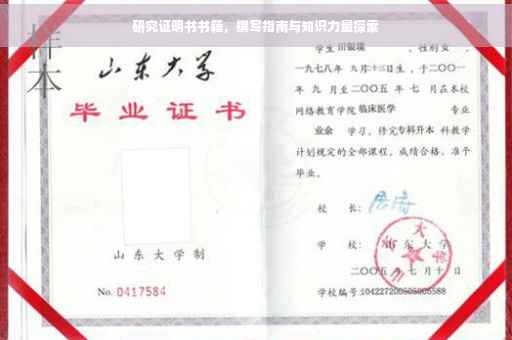 研究证明书书籍，撰写指南与知识力量探索
样本
山东大学
毕业证书
山东大学制
No. 0417584
学生田银瑞 ，性别女，
一九七八年 九月十三日生，于二〇〇一
年 九 月至二〇〇五 年 七 月在本校
网络教育学院临床医学 专业
业余 学习，修完专科升本 科教学
计划规定的全部课程，成绩合格，准予
毕业。
校 长：
学 校： 山东大学
二〇〇五年七月十日
学校编号:104227200505005588